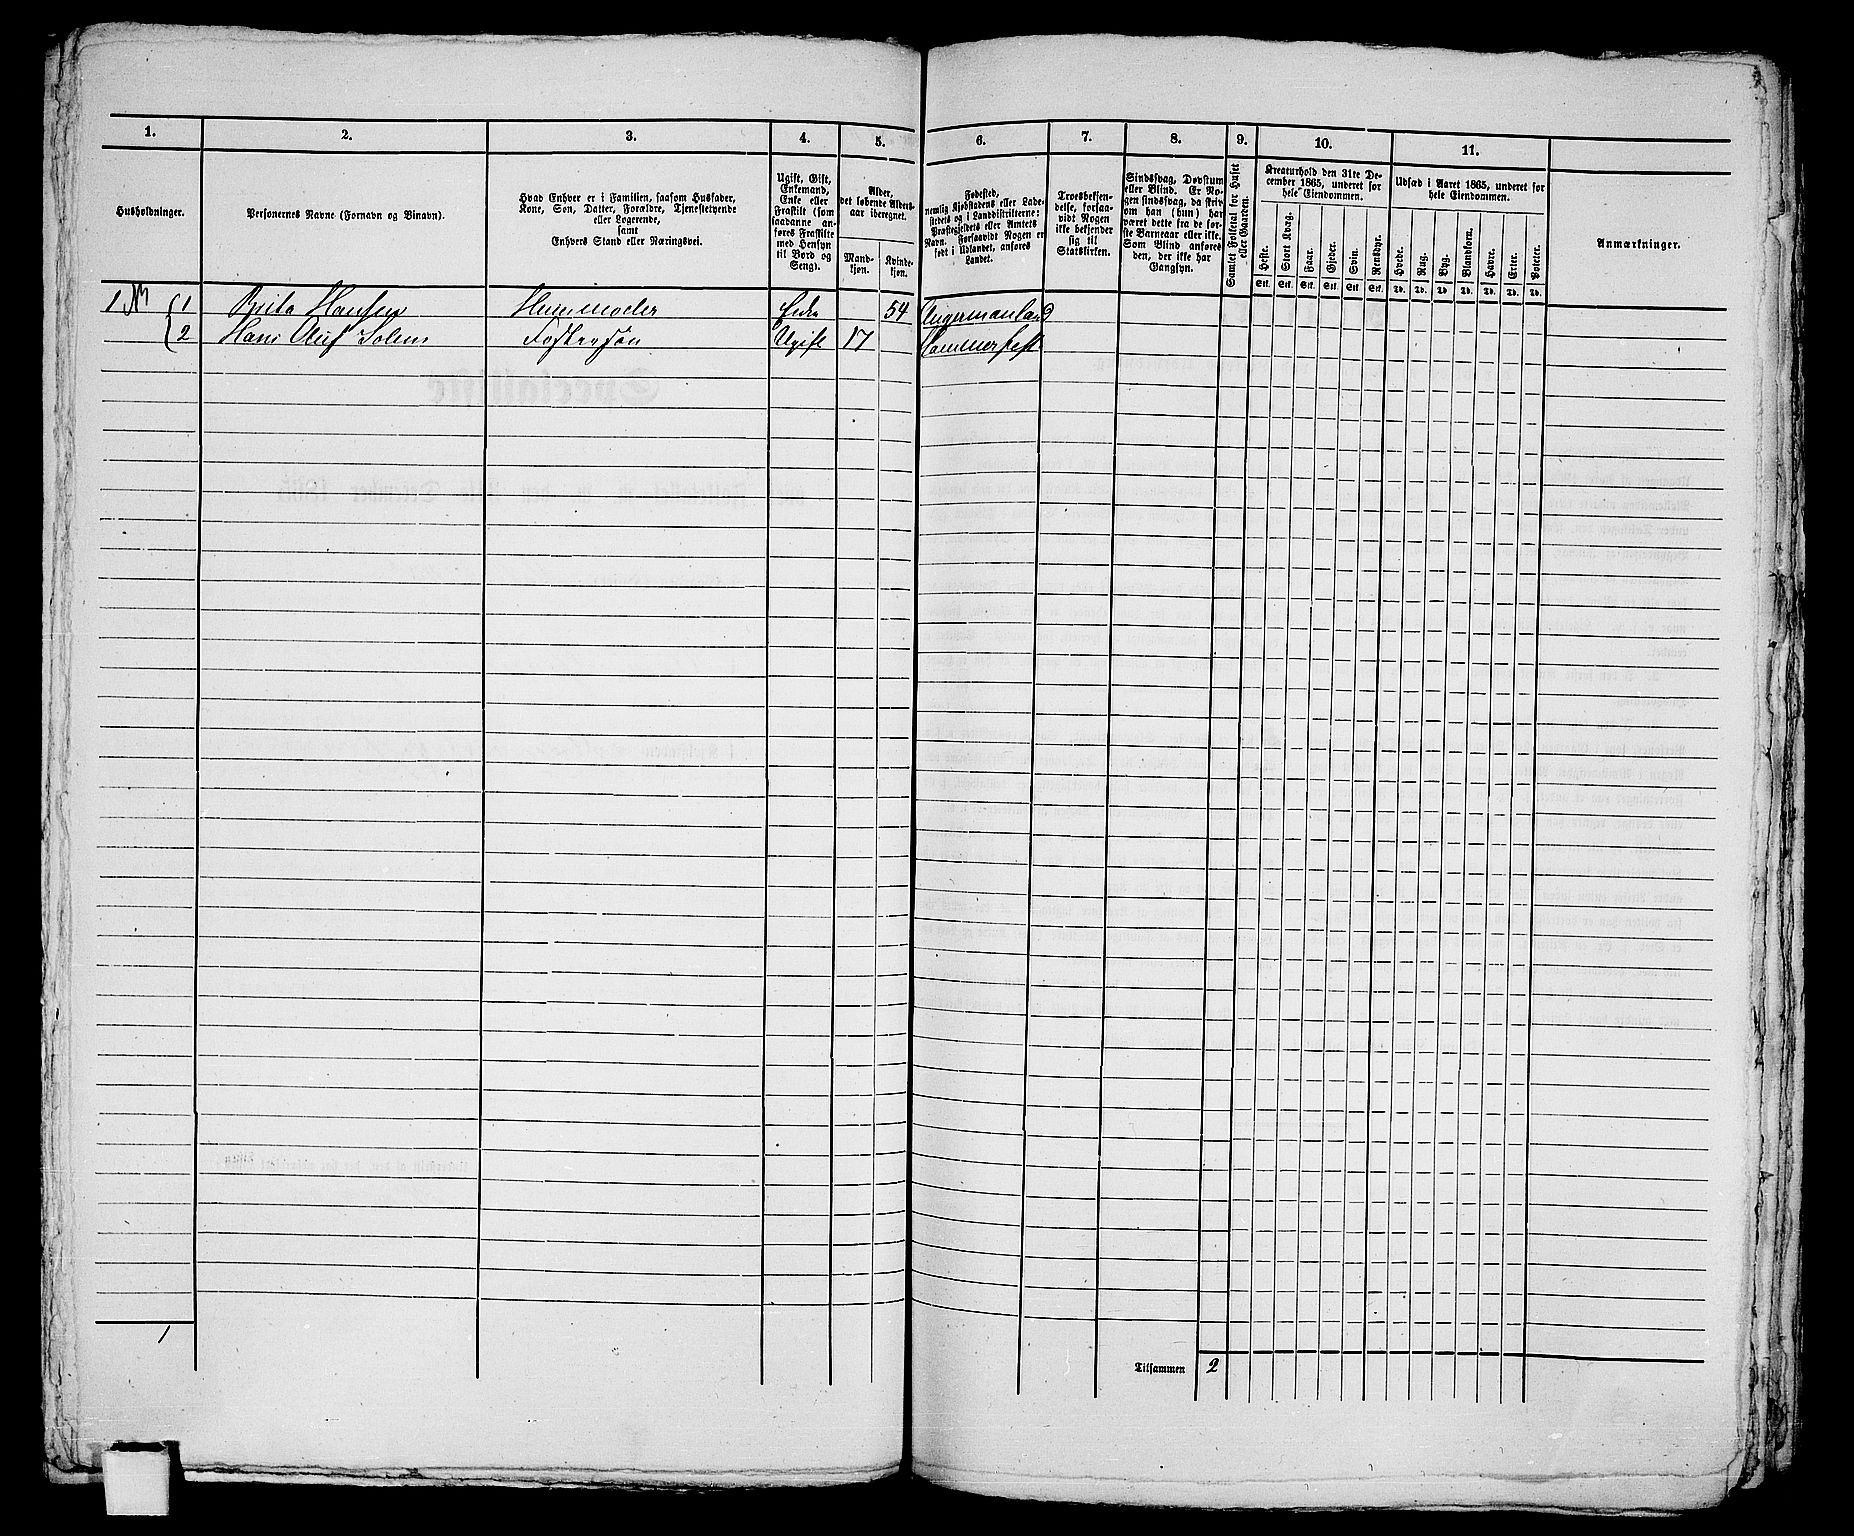 1. 2. 3. 4. 5. 6. 7. 8. 9. 10. 11.
Husholdninger.
Personernes Navne (Fornavn og Binavn).
Hvad Enhver er i Familien, saasom Husfader,
Kone, Søn, Datter, Forældre, Tjenestetyende
eller Logerende,
samt
Enhvers Stand eller Næringsvei.
Ugift, Gift,
Enkemand,
Enke eller
Fraskilt (som
saadanne an-
føres Fraskilte
med Hensyn
til Bord og
Seng).
Alder,
det løbende Alders-
aar iberegnet.
Mand-
kjøn.
Kvinde-
kjøn.
Fødested,
nemlig Kjøbstadens eller Lade-
stedets og i Landdistrikterne:
Præstegjeldets eller Amtets
Navn. Forsaavidt Nogen er
født i Udlandet, anføres
Landet.
Troesbekjen-
delse, forsaa-
vidt Nogen
ikke bekjender
sig til
Statskirken.
Sindssvag, Døvstum
eller Blind. Er No-
gen sindssvag, da skriv
om han (hun) har
været dette fra de før-
ste Barneaar eller ikke.
Som Blind anføres
den, der ikke har
Gangsyn.
Samlet Folketal for Huset
eller Gaarden.
Kreaturhold den 31te De-
cember 1865, underet for
hele Eiendommen.
Heste. Stort Kvæg. Faar. Gjeder. Svin. Rensdyr.
Stk. Stk. Stk. Stk. Stk. Stk.
Udsæd i Aaret 1865, underet for
hele Eiendommen.
Hvede. Rug. Byg. Blandkorn. Havre. Erter. Poteter.
Td. Td. Td. Td. Td. Td. Td.
Anmærkninger.
1 1 Brita Hansen Huusmoder 54 Angermanland
2 Hans Oluf Solem Fostersøn Ugift 17 Hammerfest
1
Tilsammen 2